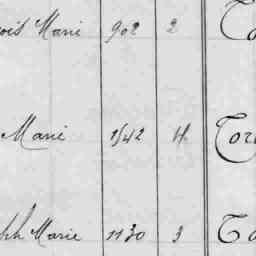 ois Marie 902 2 Co
Marie 1542 4 Cor
ph Marie 1130 3 Co